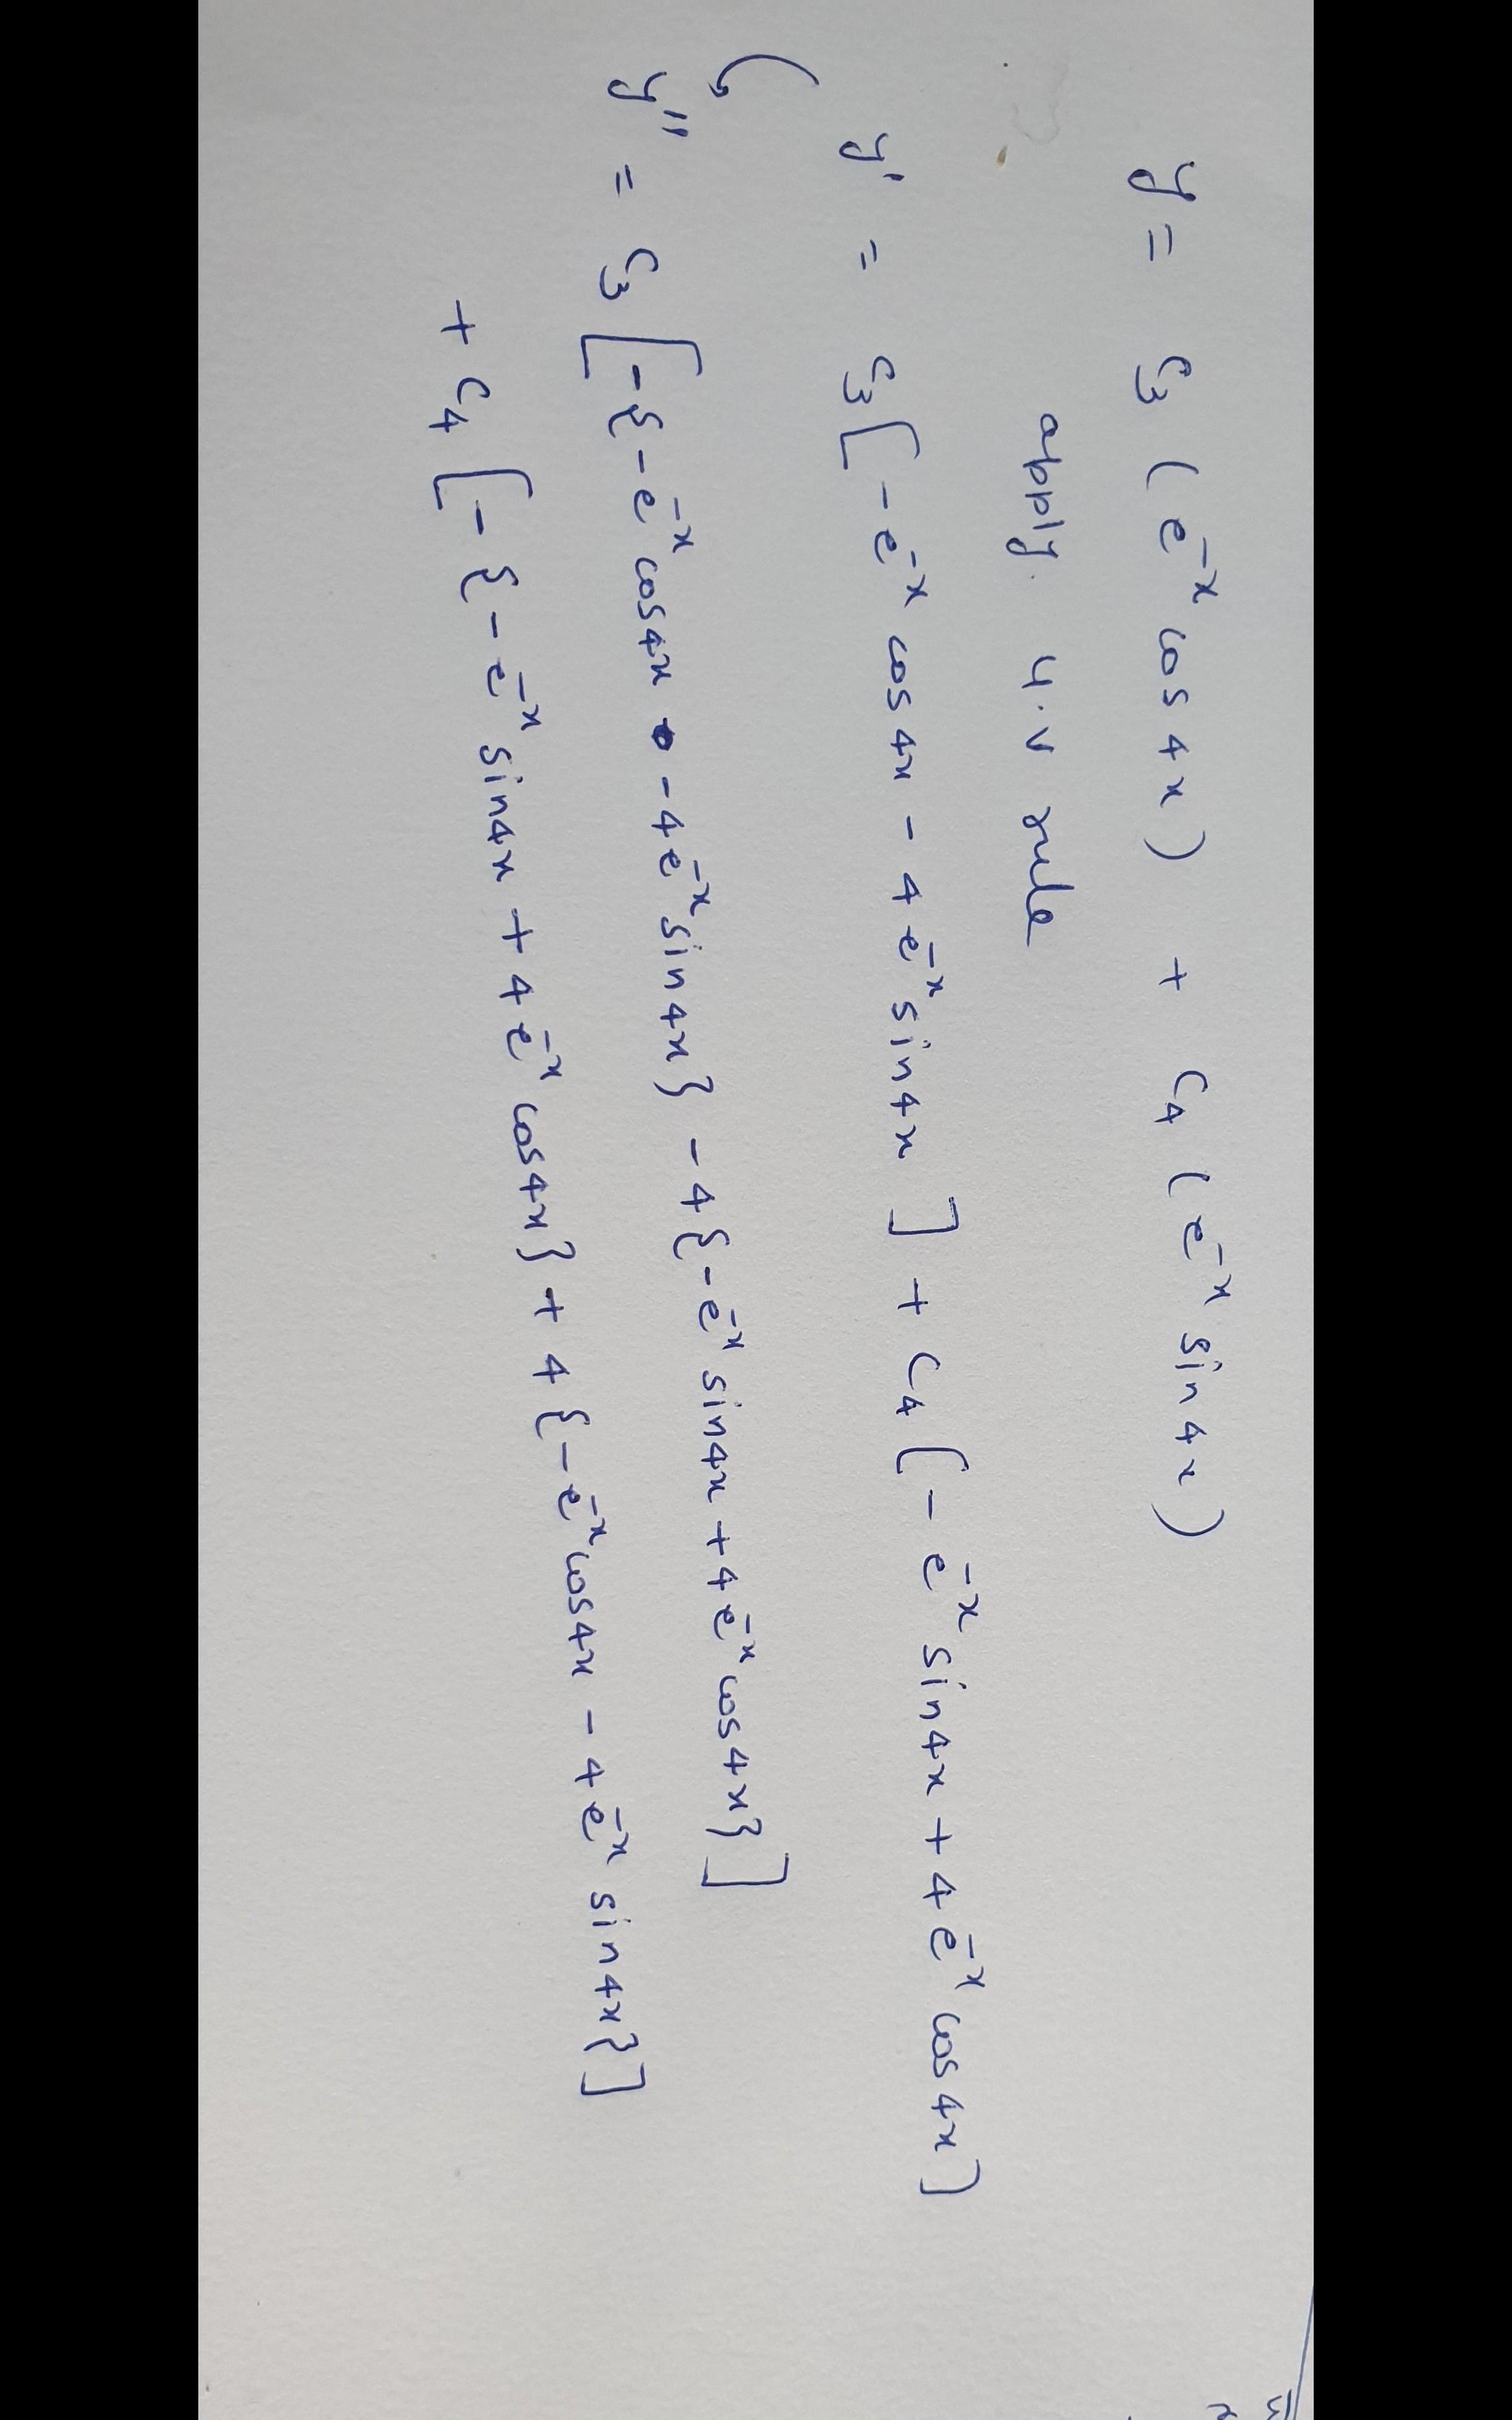 y = c₃ (e⁻ˣ cos 4x) + c₄ (e⁻ˣ sin 4x)
apply u.v rule
y' = c₃[-e⁻ˣ cos 4x - 4e⁻ˣ sin 4x] + c₄[-e⁻ˣ sin 4x + 4e⁻ˣ cos 4x]
y'' = c₃[-{-e⁻ˣ cos 4x - 4e⁻ˣ sin 4x} - 4{-e⁻ˣ sin 4x + 4e⁻ˣ cos 4x}]
+ c₄[-{-e⁻ˣ sin 4x + 4e⁻ˣ cos 4x} + 4{-e⁻ˣ cos 4x - 4e⁻ˣ sin 4x}]